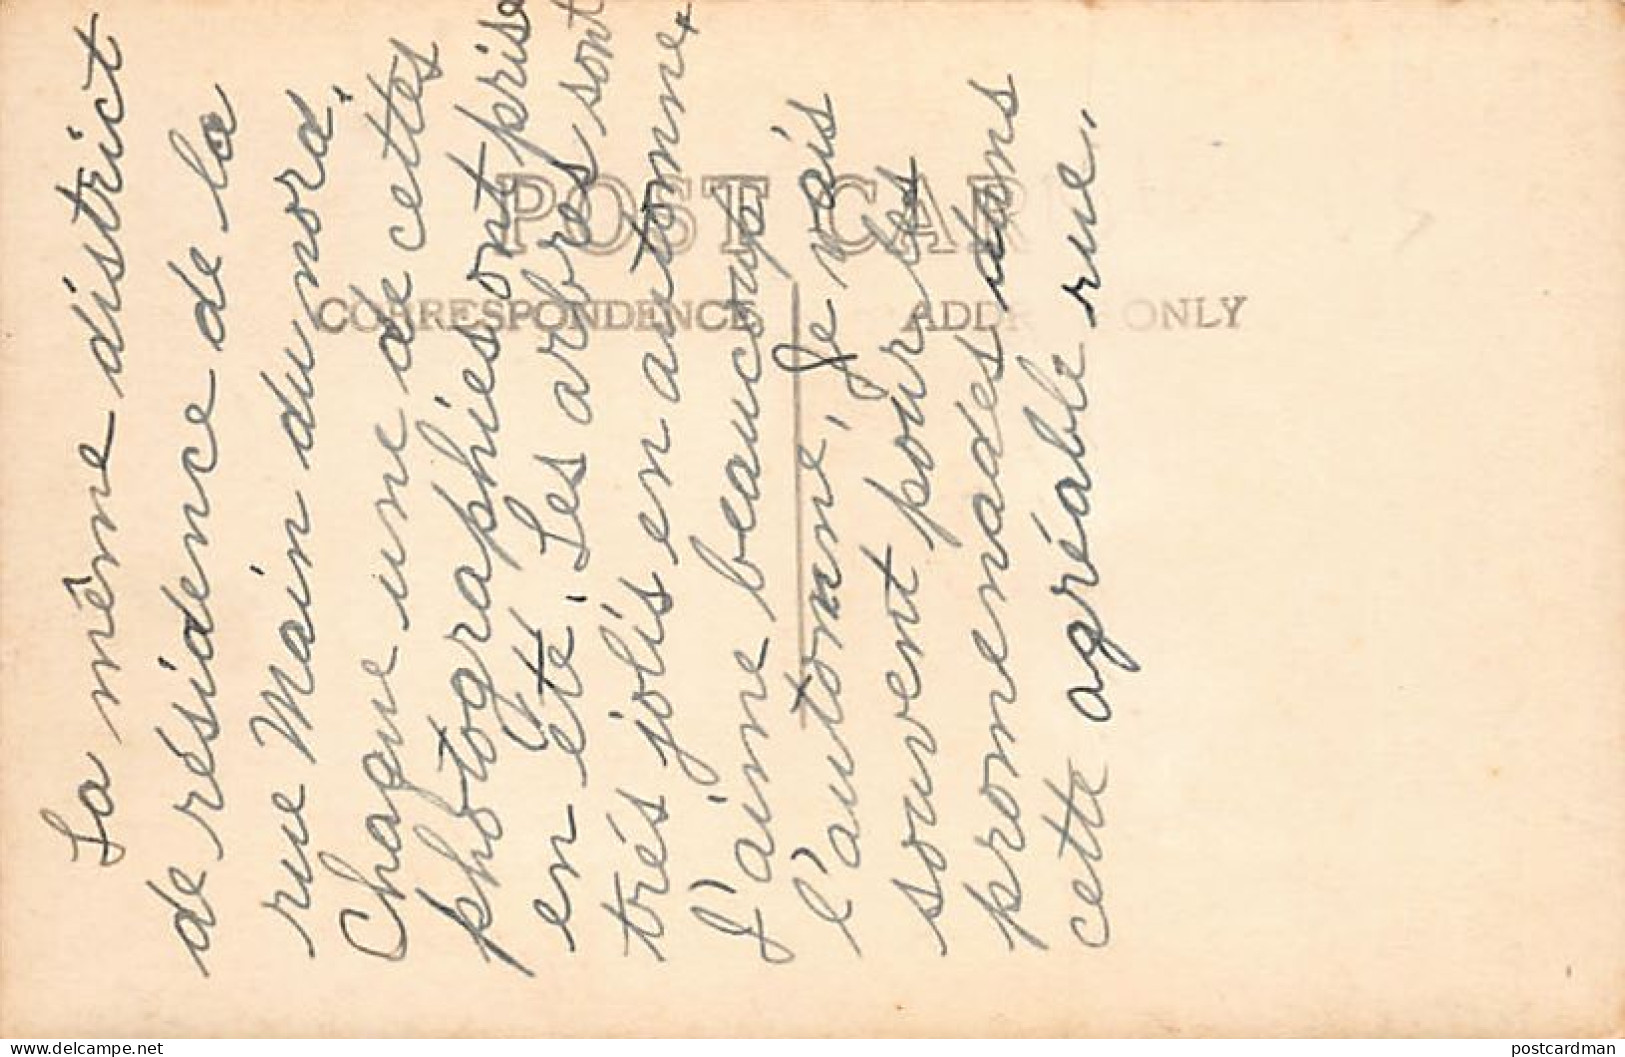 La même district
de résidence de la
rue Main du nord.
Chaque une de cettes
photographies ont prise
en été. Les arbres sont
trés jolis en automne.
J'aime beaucoup
l'automne. Je vais
souvent pour les
promenades dans
cette agréable rue.
POST CAR
CORRESPONDENCE
ADDR ONLY
delcampe.net
postcardman